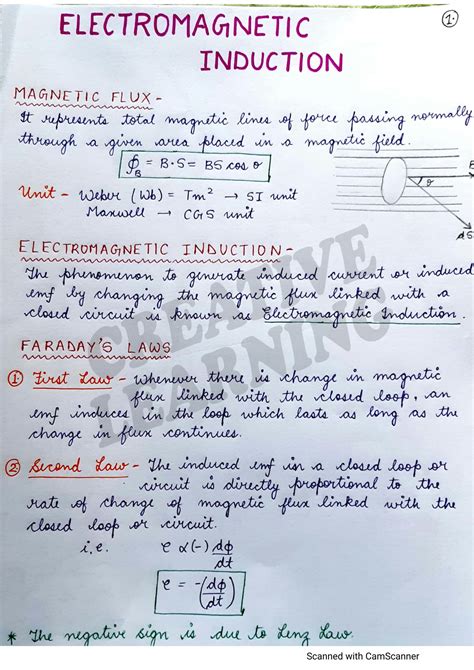 1.
ELECTROMAGNETIC
INDUCTION
MAGNETIC FLUX -
It represents total magnetic lines of force passing normally
through a given area placed in a magnetic field.
ϕ_B = B·S = BS cos θ
Unit - Weber (Wb) = Tm² → SI unit
Maxwell → CGS unit
B
θ
ΔS
ELECTROMAGNETIC INDUCTION -
The phenomenon to generate induced current or induced
emf by changing the magnetic flux linked with a
closed circuit is known as Electromagnetic Induction.
CREATIVE
LEARNING
FARADAY'S LAWS
① First Law - Whenever there is change in magnetic
flux linked with the closed loop, an
emf induces in the loop which lasts as long as the
change in flux continues.
② Second Law - The induced emf in a closed loop or
circuit is directly proportional to the
rate of change of magnetic flux linked with the
closed loop or circuit.
i.e. e ∝ (-) dϕ/dt
e = -(dϕ/dt)
* The negative sign is due to Lenz Law.
Scanned with CamScanner